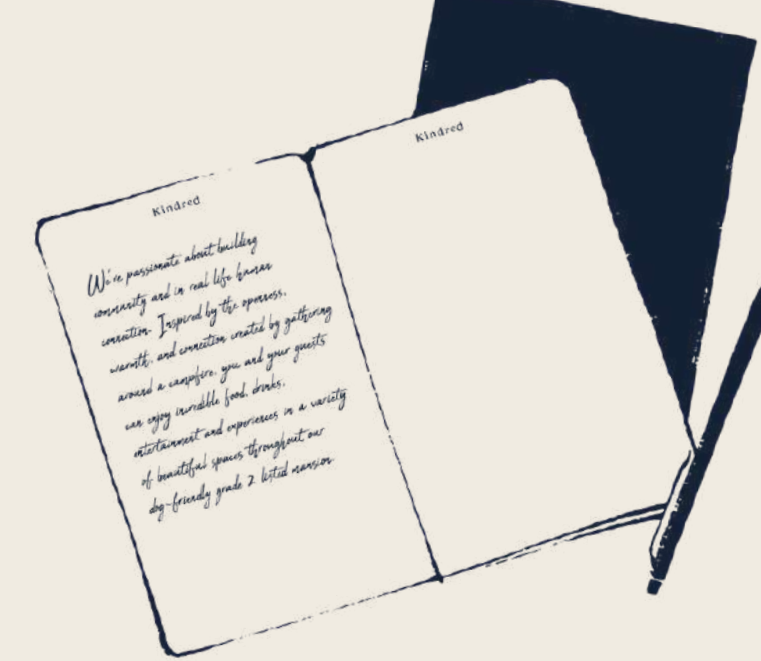 Kindred
We're passionate about building
community and in real life human
connection. Inspired by the openness,
warmth, and connection created by gathering
around a campfire, you and your guests
can enjoy incredible food, drinks,
entertainment and experiences in a variety
of beautiful spaces throughout our
dog-friendly grade 2 listed mansion
Kindred